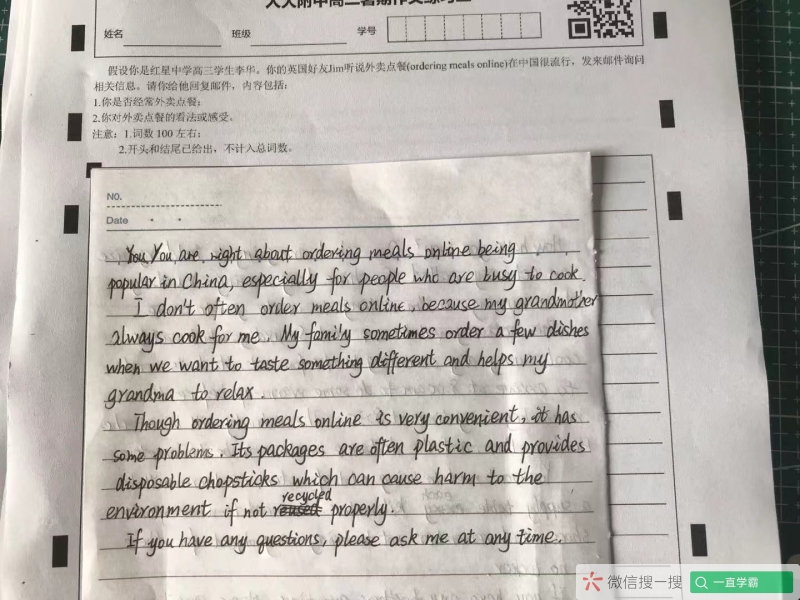 姓名 班级 学号
假设你是红星中学高三学生李华。你的英国好友Jim听说外卖点餐(ordering meals online)在中国很流行，发来邮件询问
相关信息。请你给他回复邮件，内容包括：
1.你是否经常外卖点餐；
2.你对外卖点餐的看法或感受。
注意：1.词数 100 左右；
2.开头和结尾已给出，不计入总词数。
NO.
Date
You You are right about ordering meals online being
popular in China, especially for people who are busy to cook.
I don't often order meals online, because my grandmother
always cook for me. My family sometimes order a few dishes
when we want to taste something different and helps my
grandma to relax.
Though ordering meals online is very convenient, it has
some problems. Its packages are often plastic and provides
disposable chopsticks which can cause harm to the
environment if not recycled properly.
If you have any questions, please ask me at any time.
微信搜一搜 一直学霸